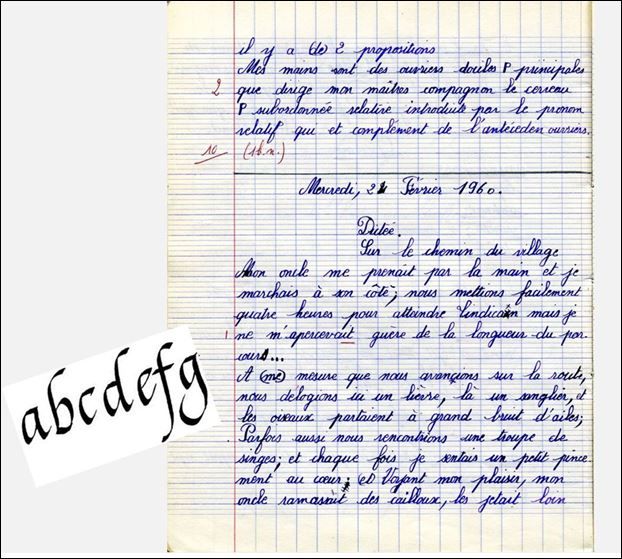 il y a (de) 2 propositions
Mes mains sont des ouvriers dociles P principales
2
que dirige mon maîtres compagnon le cerveau
P subordonnée relative introduite par le pronom
relatif qui et complément de l'antéceden ouvriers.
10 (1b.n.)
Mercredi, 24 Février 1960.
Dictée.
Sur le chemin du village
Mon oncle me prenait par la main et je
marchais à son côté; nous mettions facilement
quatre heures pour atteindre mais je
1 ne m'apercevait guère de la longueur du par
cours...
A (me) mesure que nous avançions sur la route,
nous délogions ici un lièvre, là un sanglier, et
les oiseaux partaient à grand bruit d'ailes;
Parfois aussi nous rencontrions une troupe de
singes; et chaque fois je sentais un petit pince
ment au cœur; (et) Voyant mon plaisir, mon
oncle ramassait des cailloux, les jetait loin
abcdefg